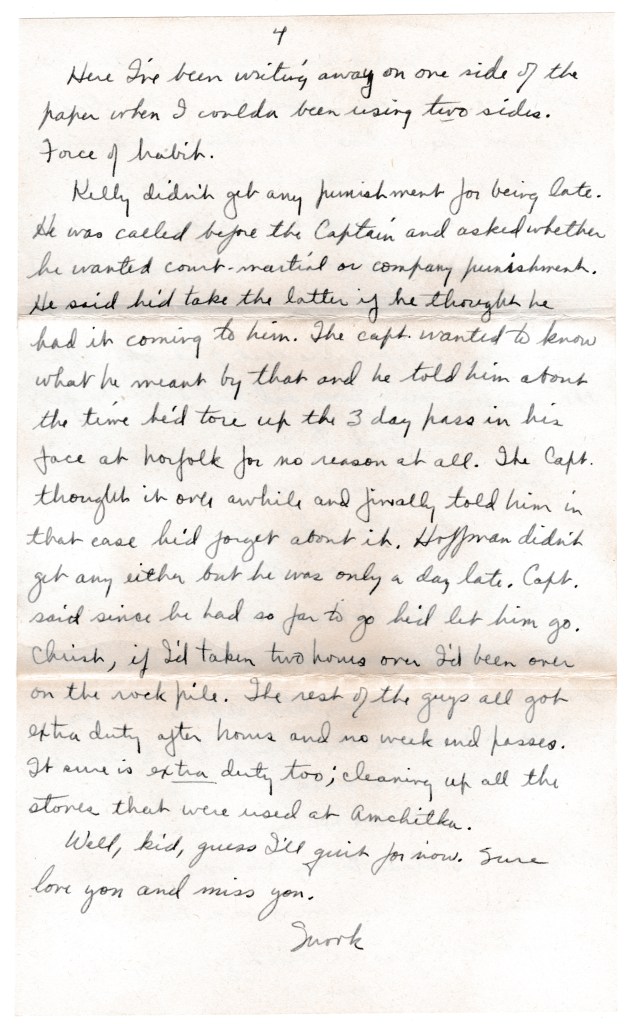 4
Here I've been writing away on one side of the
paper when I coulda been using two sides.
Force of habit.
Kelly didn't get any punishment for being late.
He was called before the Captain and asked whether
he wanted court-martial or company punishment.
He said he'd take the latter if he thought he
had it coming to him. The capt. wanted to know
what he meant by that and he told him about
the time he'd tore up the 3 day pass in his
face at Norfolk for no reason at all. The Capt.
thought it over awhile and finally told him in
that case he'd forget about it. Hoffman didn't
get any either but he was only a day late. Capt.
said since he had so far to go he'd let him go.
Christ, if I'd taken two hours over I'd been over
on the rock pile. The rest of the guys all got
extra duty after hours and no week end passes.
It sure is extra duty too; cleaning up all the
stoves that were used at Amchitka.
Well, kid, guess I'll quit for now. Sure
love you and miss you.
Snork